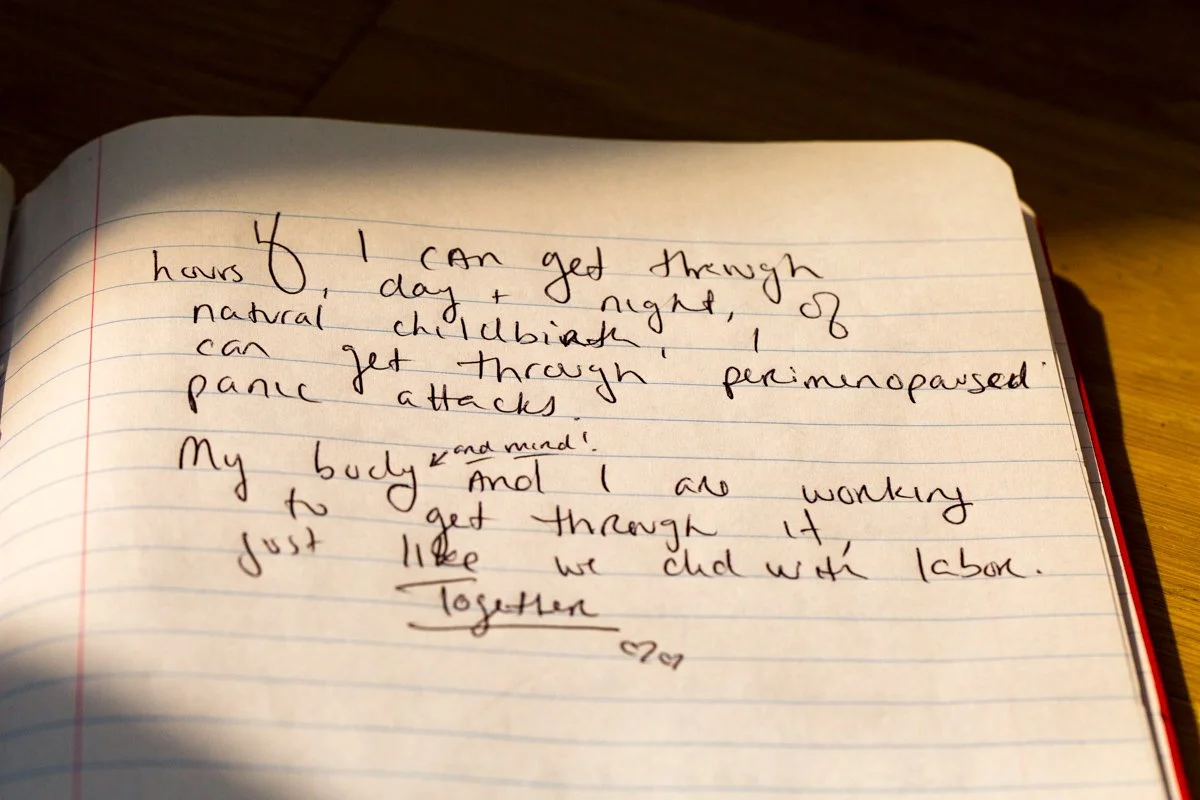 If I can get through
hours, day + night, of
natural childbirth, I
can get through perimenopausal
panic attacks.
and mind!
My body And I are working
to get through it,
just like we did with labor.
Together